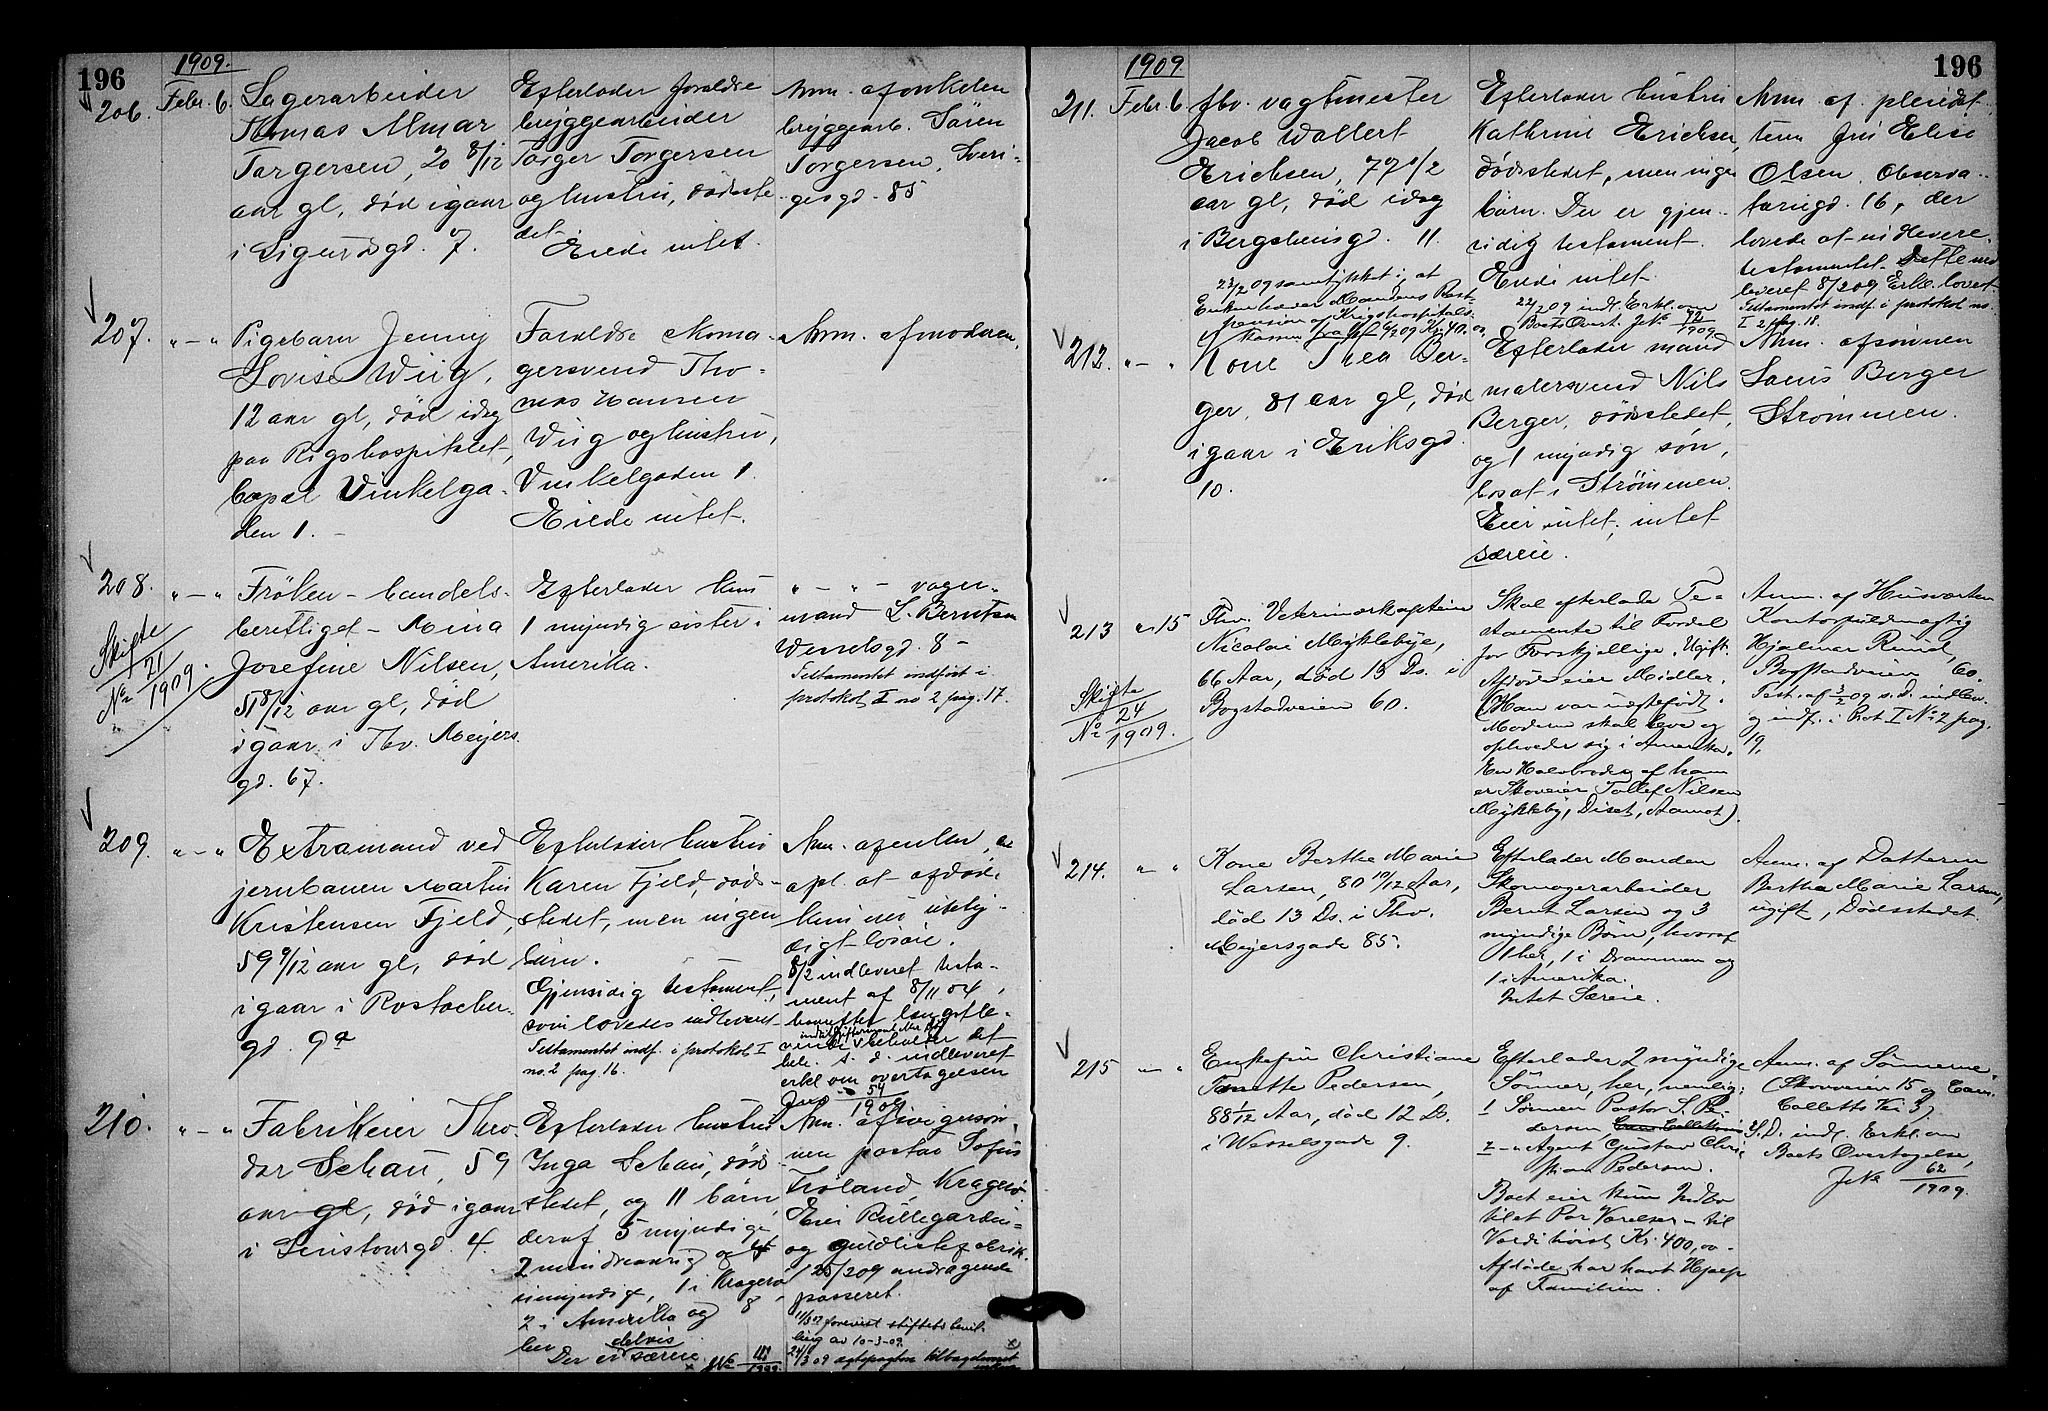 196
1909.
206. Febr. 6.
Lagerarbeider
Thomas Almar
Torgersen, 20 8/12
aar gl, død igaar
i Sigurdsgd. 7.
Efterlader foreldre
bryggearbeider
Torger Torgersen
og hustru, dødste-
det.
Eiede intet.
Anm. af onkelen
bryggearb. Søren
Torgersen, Sveri-
gesgd. 85
207. " - "
Pigebarn Jenny
Lovise Wiig,
12 aar gl, død idag
paa Rigshospitalet,
bopæl Vinkelga-
den 1. -
Forældre skoma-
gersvend Tho-
mas Hansen
Wiig og hustru,
Vinkelgaden 1.
Eiede intet.
Anm. af moderen.
208. " - "
Skifte
No 21/1909.
Frøken - handels-
berettiget - Anna
Josefine Nilsen,
51 8/12 aar gl, død
igaar i Thv. Meijers
gd. 67.
Efterlader kun
1 myndig søster i
Amerika.
" - " - vogn-
mand L. Berntsen
Wesselsgd. 8 -
Testamentet indført i
protokol I no 2, pag. 17.
209. " - "
Extramand ved
jernbanen Martin
Kristensen Fjeld,
59 9/12 aar gl, død
igaar i Rostocker-
gd. 9a
Efterlader hustru
Karen Fjeld, døds-
stedet, men ingen
børn.
Gjensidig testament,
som lovedes indleveret.
Testamentet indf. i protokol I
no. 2 pag. 16.
Anm. af enken,
opl. at afdøde
kun eier ubety-
deligt løsøre.
8/2 indleveret testa-
ment af 8/11 04,
hvorefter længstle-
vende beholder det
hele. S. D. indleveret
erkl om overtagelsen
Jno 54/1909
210. " - "
Fabrikeier Theo-
dor Schau, 59
aar gl, død igaar
i Seilduksgd. 4.
Efterlader hustru
Inga Schau, død-
stedet, og 11 børn,
deraf 5 myndige,
2 mindreaarig og 4
umyndige, 1 i Kragerø
2 i Amerika og 8
her
delvis
Der er særeie.
Anm. af svigersøn-
nen pastor Sofus
Trøland, Kragerø.
Eier Rullegardin-
og guldlistefabrik.
25/209 andragende
passeret.
11/3 09 forevist stiftets bevil-
ling av 10-3-09.
24/3 09 ægtepagten tilbageleveret
1909
196
211. Febr. 6.
fhv. vagtmester
Jacob Wollert
Erichsen, 77 1/2
aar gl, død idag
i Bergsliensgd. 11.
22/2 09 samtykket i, at
Enken hæver Mandens Rest-
pension af Krigshospitals-
kassen
Efterlader hustru
Kathrine Erichsen,
dødsstedet, men ingen
børn. Der er gjen-
sidig testament.
Eiede intet.
22/2 09 indl Erkl. om
Boets Overt. JNo 72/1909
Anm. af pleiedat-
teren frk Elise
Olsen, Observa-
toriegd. 16, der
lovede at indlevere
testamentet. Dette ind-
leveret 8/2 09 Erkl. lovet
Testamentet indf. i protokol no.
I 2 pag. 18.
212. " - "
Kone Thea Ber-
ger, 81 aar gl, død
igaar i Eriksgd.
10.
Efterlader mand
malersvend Nils
Berger, dødsstedet,
og 1 myndig søn,
bosat i Strømmen.
Eier intet, intet
særeie.
Anm. af sønnen
Laurits Berger
Strømmen.
213 " 15
Skifte
No 24/1909.
Fhv. Veterinærkaptein
Nicolai Myklebye,
66 Aar, død 13 Ds. i
Bogstadveien 60.
Skal efterlade Te-
stamente til Fordel
for Forskjellige. Ugift.
Afdøde eier Midler.
(Han var uægtefødt.
Moderen skal leve og
opholder sig i Amerika.
En Halvbroder af ham
er Skoveier Tollef Nilsen
Mykleby, Diset, Aamot).
Anm. af Husverten
Kontorfuldmægtig
Hjalmar Rund,
Bogstadveien 60.
Test. af 3/2 09 s. D. indlev.
og indf. i Prot I No 2 pag.
19.
214. " - "
Kone Berthe Marie
Larsen, 80 10/12 Aar,
død 13 Ds. i Thv.
Meijersgade 85.
Efterlader Manden
Skomagerarbeider
Bernt Larsen og 3
myndige Børn, hvoraf
1 her, 1 i Drammen og
1 i Amerika.
Intet Særeie.
Anm. af Datteren
Bertha Marie Larsen,
ugift, Dødsstedet.
215 " - "
Enkefru Christiane
Tonette Pedersen,
88 1/12 Aar, død 12 Ds.
i Wesselsgade 9.
Efterlader 2 myndige
Sønner, her, nemlig:
1 Sønnen Pastor S. Pe-
dersen,
2 - " Agent Gustav Chri-
stian Pedersen.
Boet eier kun Indbo
til et Par Værelser - til
Værdi høist Kr. 400,00 -
Afdøde har havt Hjælp
af Familien.
Anm. af Sønnerne
(Skovveien 15 og Cam.
Colletts Vei 3)
S. D. indl. Erkl. om
Boets Overtagelse,
JNo 62/1909.